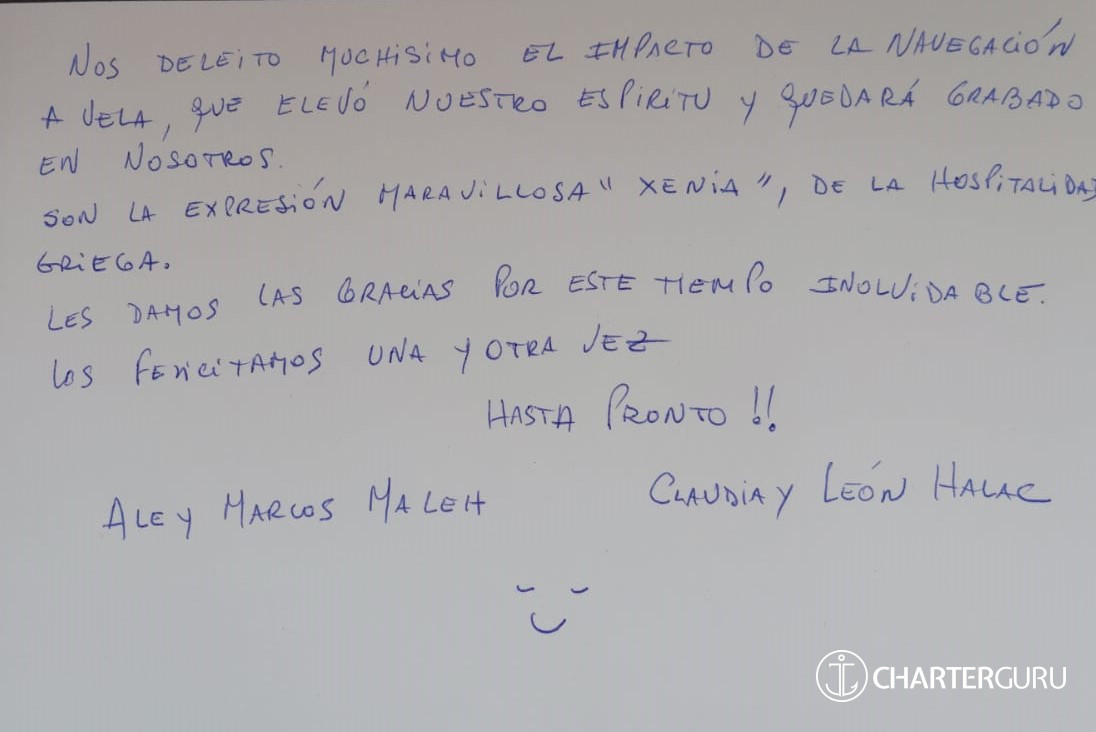 NOS DELEITO MUCHISIMO EL IMPACTO DE LA NAVEGACIÓN
A VELA, QUE ELEVÓ NUESTRO ESPIRITU Y QUEDARÁ GRABADO
EN NOSOTROS.
SON LA EXPRESIÓN MARAVILLOSA "XENIA", DE LA HOSPITALIDAD
GRIEGA.
LES DAMOS LAS GRACIAS POR ESTE TIEMPO INOLVIDABLE.
LOS FELICITAMOS UNA Y OTRA VEZ
HASTA PRONTO !!
ALE Y MARCOS MALEH
CLAUDIA Y LEÓN HALAC
CHARTERGURU